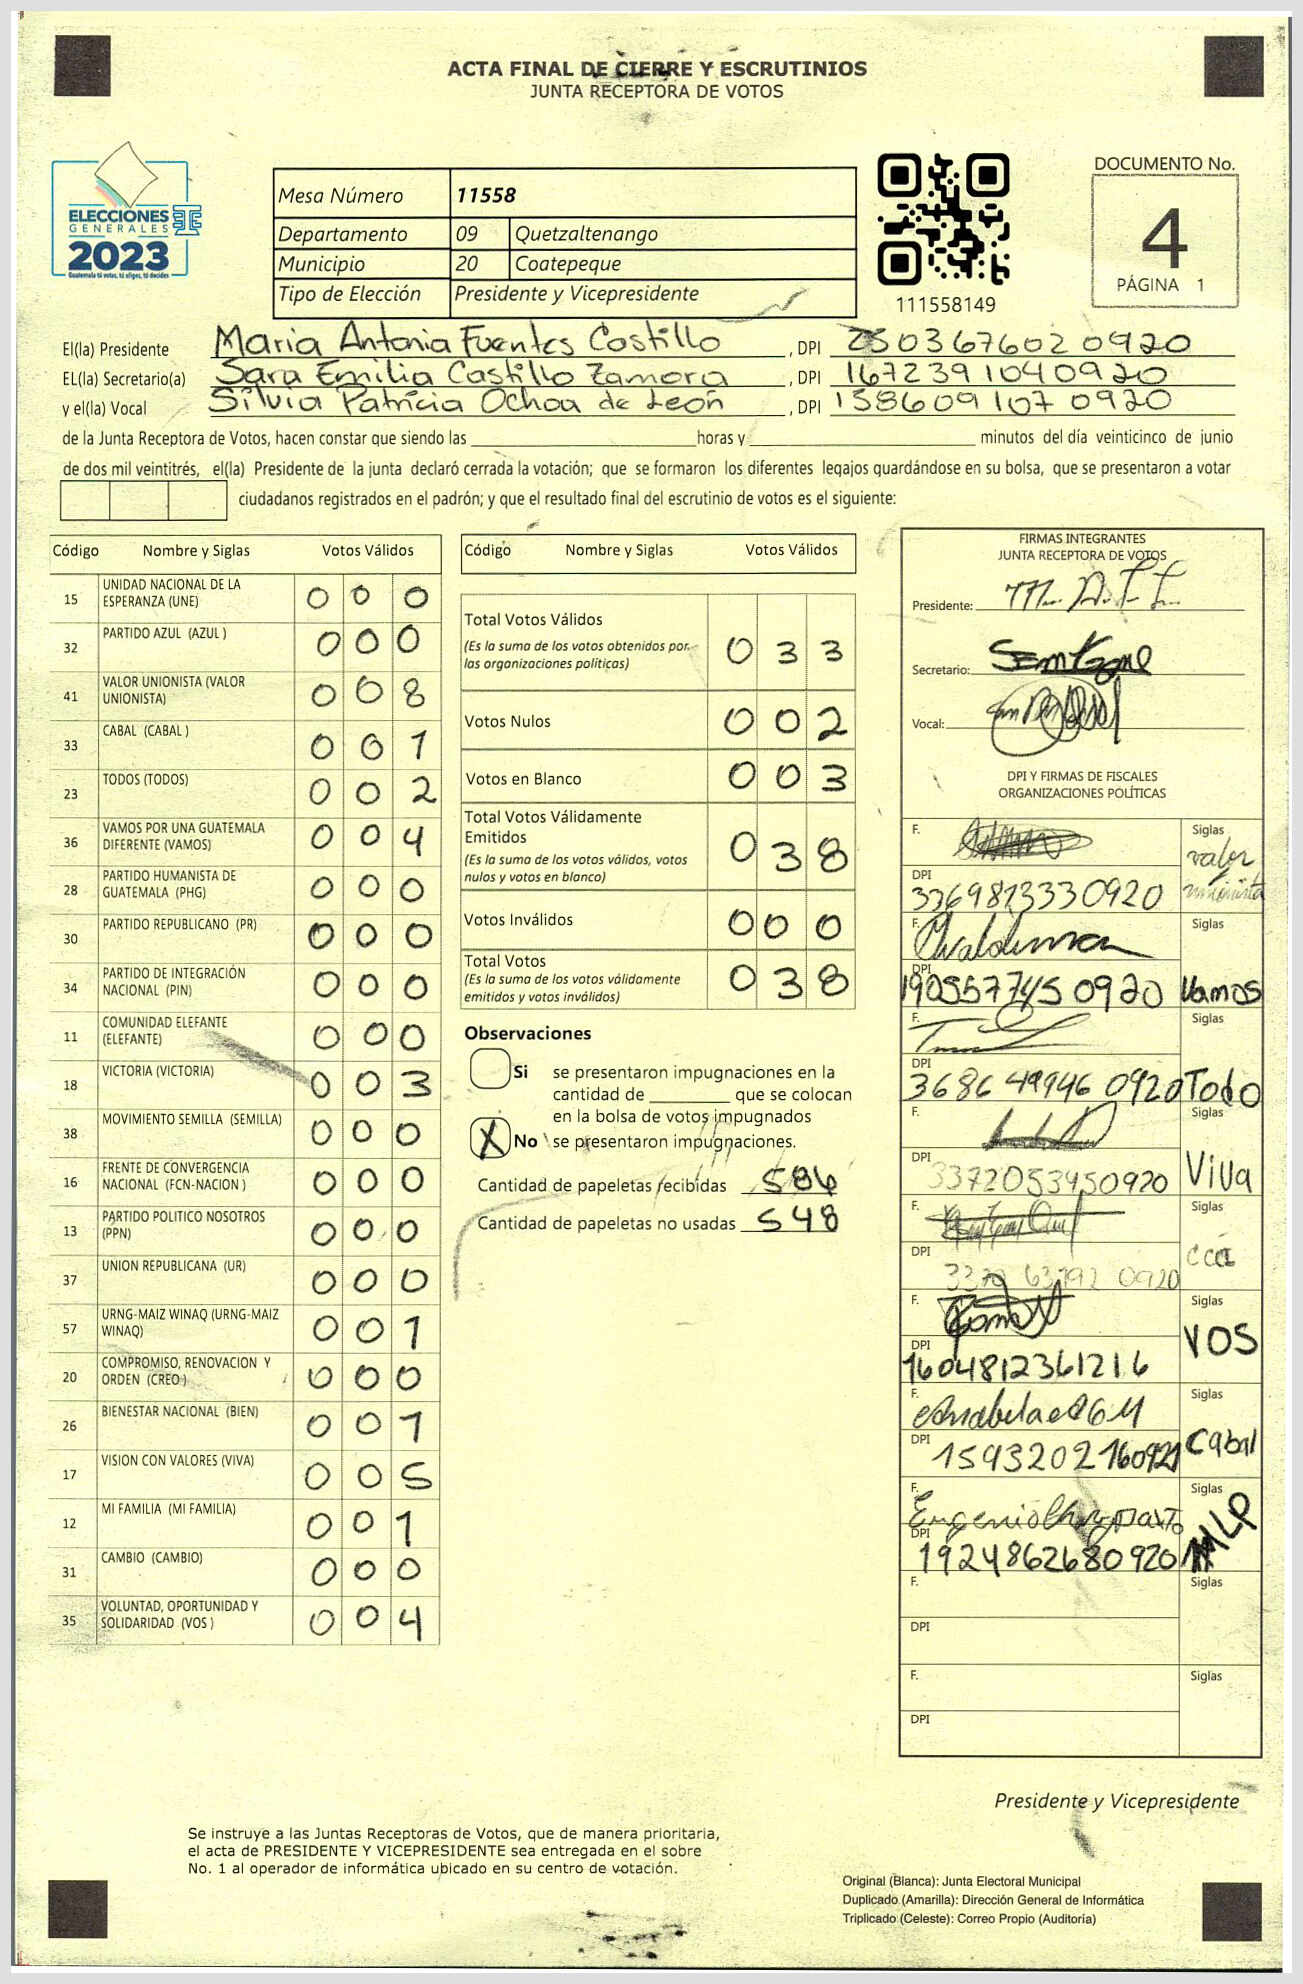 ACTA FINAL DE CIERRE Y ESCRUTINIOS
JUNTA RECEPTORA DE VOTOS
ELECCIONES
GENERALES
2023
Guatemala tú votas, tú eliges, tú decides
Mesa Número 11558
Departamento 09 Quetzaltenango
Municipio 20 Coatepeque
Tipo de Elección Presidente y Vicepresidente
111558149
DOCUMENTO No.
4
PÁGINA 1
El(la) Presidente Maria Antonia Fuentes Castillo , DPI 2303676020920
EL(la) Secretario(a) Sara Emilia Castillo Zamora , DPI 1672391040920
y el(la) Vocal Silvia Patricia Ochoa de León , DPI 1586091070920
de la Junta Receptora de Votos, hacen constar que siendo las horas y minutos del día veinticinco de junio
de dos mil veintitrés, el(la) Presidente de la junta declaró cerrada la votación; que se formaron los diferentes legajos guardándose en su bolsa, que se presentaron a votar
ciudadanos registrados en el padrón; y que el resultado final del escrutinio de votos es el siguiente:
Código Nombre y Siglas Votos Válidos
15 UNIDAD NACIONAL DE LA ESPERANZA (UNE) 0 0 0
32 PARTIDO AZUL (AZUL ) 0 0 0
41 VALOR UNIONISTA (VALOR UNIONISTA) 0 0 8
33 CABAL (CABAL ) 0 0 1
23 TODOS (TODOS) 0 0 2
36 VAMOS POR UNA GUATEMALA DIFERENTE (VAMOS) 0 0 4
28 PARTIDO HUMANISTA DE GUATEMALA (PHG) 0 0 0
30 PARTIDO REPUBLICANO (PR) 0 0 0
34 PARTIDO DE INTEGRACIÓN NACIONAL (PIN) 0 0 0
11 COMUNIDAD ELEFANTE (ELEFANTE) 0 0 0
18 VICTORIA (VICTORIA) 0 0 3
38 MOVIMIENTO SEMILLA (SEMILLA) 0 0 0
16 FRENTE DE CONVERGENCIA NACIONAL (FCN-NACION ) 0 0 0
13 PARTIDO POLITICO NOSOTROS (PPN) 0 0 0
37 UNION REPUBLICANA (UR) 0 0 0
57 URNG-MAIZ WINAQ (URNG-MAIZ WINAQ) 0 0 1
20 COMPROMISO, RENOVACION Y ORDEN (CREO ) 0 0 0
26 BIENESTAR NACIONAL (BIEN) 0 0 1
17 VISION CON VALORES (VIVA) 0 0 5
12 MI FAMILIA (MI FAMILIA) 0 0 1
31 CAMBIO (CAMBIO) 0 0 0
35 VOLUNTAD, OPORTUNIDAD Y SOLIDARIDAD (VOS ) 0 0 4
Código Nombre y Siglas Votos Válidos
Total Votos Válidos
(Es la suma de los votos obtenidos por las organizaciones políticas) 0 3 3
Votos Nulos 0 0 2
Votos en Blanco 0 0 3
Total Votos Válidamente Emitidos
(Es la suma de los votos válidos, votos nulos y votos en blanco) 0 3 8
Votos Inválidos 0 0 0
Total Votos
(Es la suma de los votos válidamente emitidos y votos inválidos) 0 3 8
Observaciones
Si se presentaron impugnaciones en la
cantidad de que se colocan
en la bolsa de votos impugnados
X No se presentaron impugnaciones.
Cantidad de papeletas recibidas 586
Cantidad de papeletas no usadas 548
FIRMAS INTEGRANTES
JUNTA RECEPTORA DE VOTOS
Presidente:
Secretario:
Vocal:
DPI Y FIRMAS DE FISCALES
ORGANIZACIONES POLÍTICAS
F. Siglas
valor
unionista
DPI 3369873330920
F. Siglas
DPI 1905577450920 Vamos
F. Siglas
DPI 3686499460920 Todo
F. Siglas
DPI 3372053450920 Viva
F. Siglas
DPI 3372637920920
F. Siglas
VOS
DPI 1604812361216
F. Siglas
DPI 1593202160921 Cabal
F. Siglas
MLP
DPI 1924862680920
F. Siglas
DPI
F. Siglas
DPI
Presidente y Vicepresidente
Se instruye a las Juntas Receptoras de Votos, que de manera prioritaria,
el acta de PRESIDENTE Y VICEPRESIDENTE sea entregada en el sobre
No. 1 al operador de informática ubicado en su centro de votación.
Original (Blanca): Junta Electoral Municipal
Duplicado (Amarilla): Dirección General de Informática
Triplicado (Celeste): Correo Propio (Auditoría)